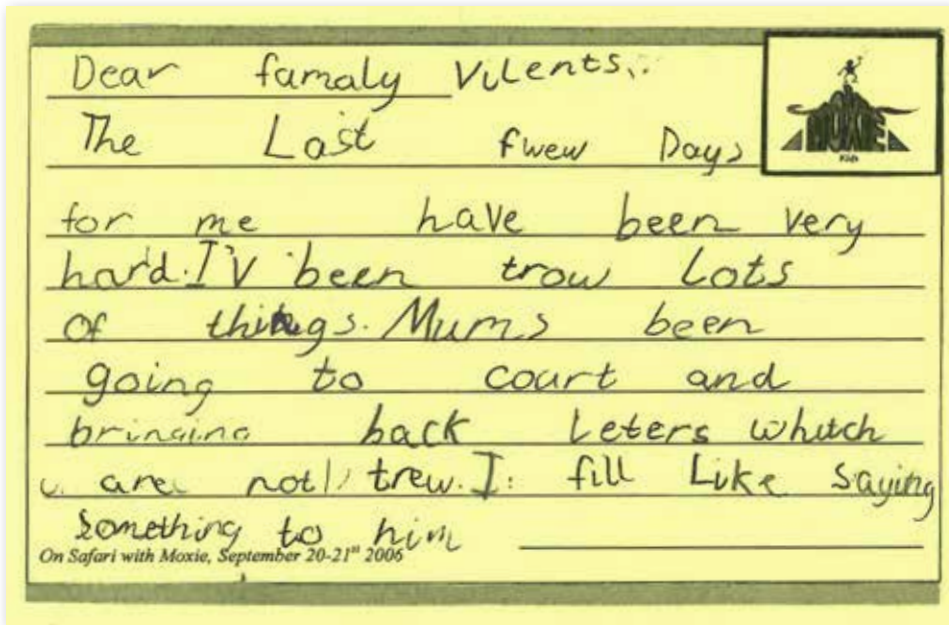 Dear famaly Vilents..
The Last fwew Days
MOXIE
Kids
for me have been very
hard. I'V been trow Lots
of things. Mums been
going to court and
bringing back Leters whutch
are not trew. I fill Like saying
something to him
On Safari with Moxie, September 20-21st 2006